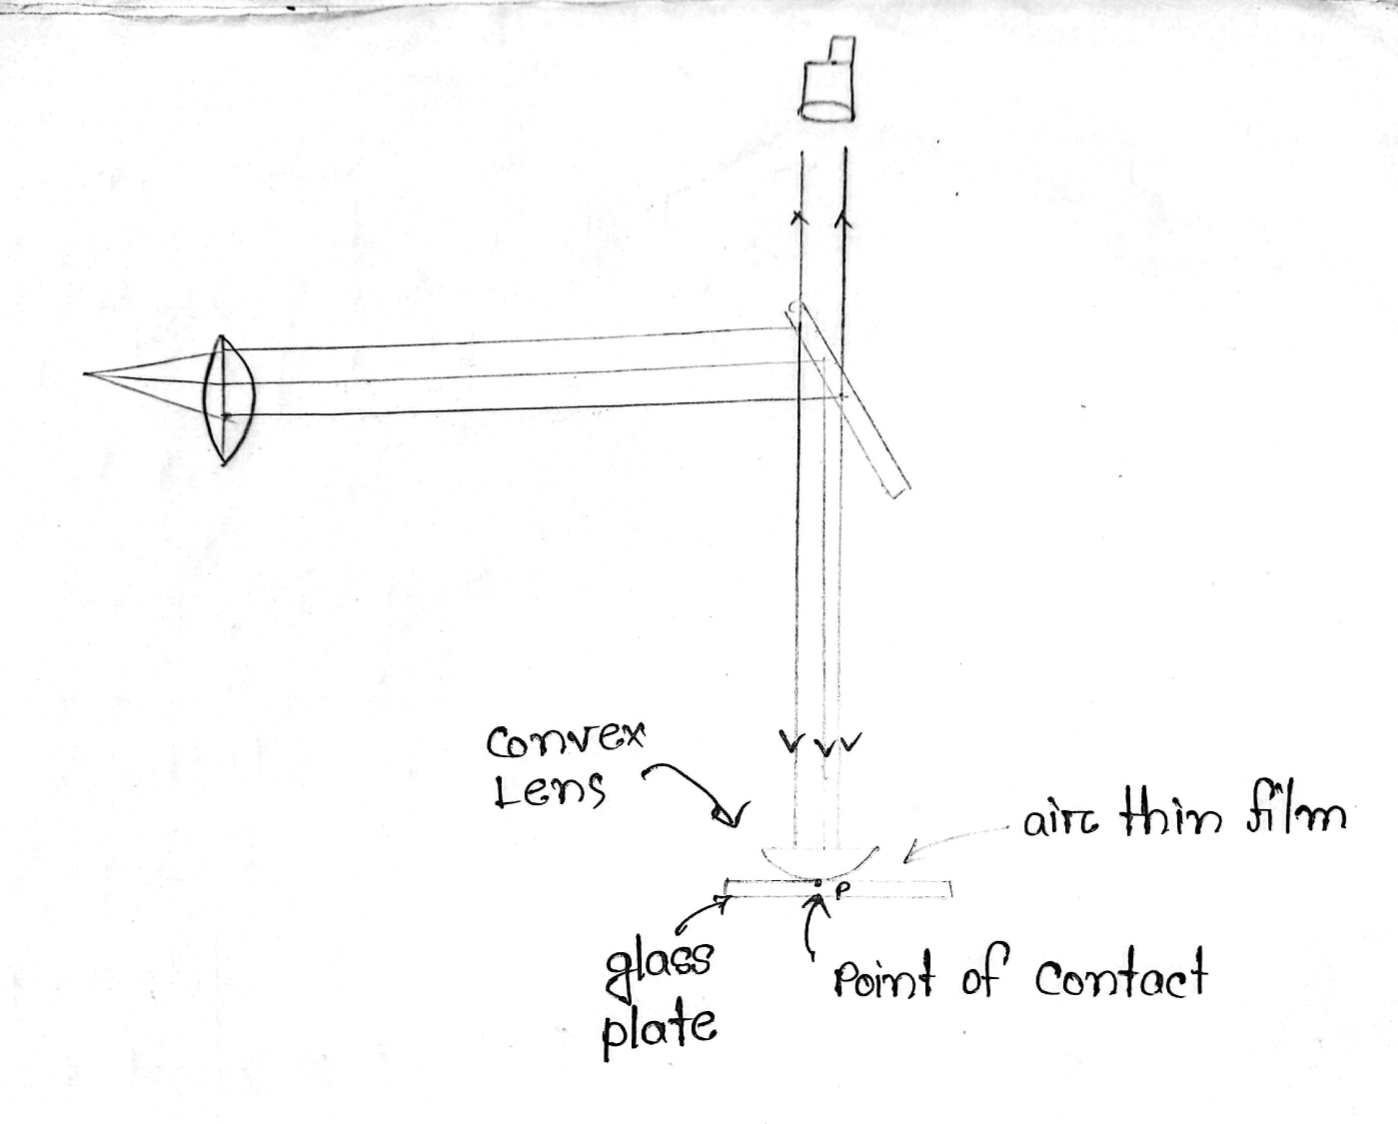 convex
Lens
air thin film
P
glass
plate
Point of contact